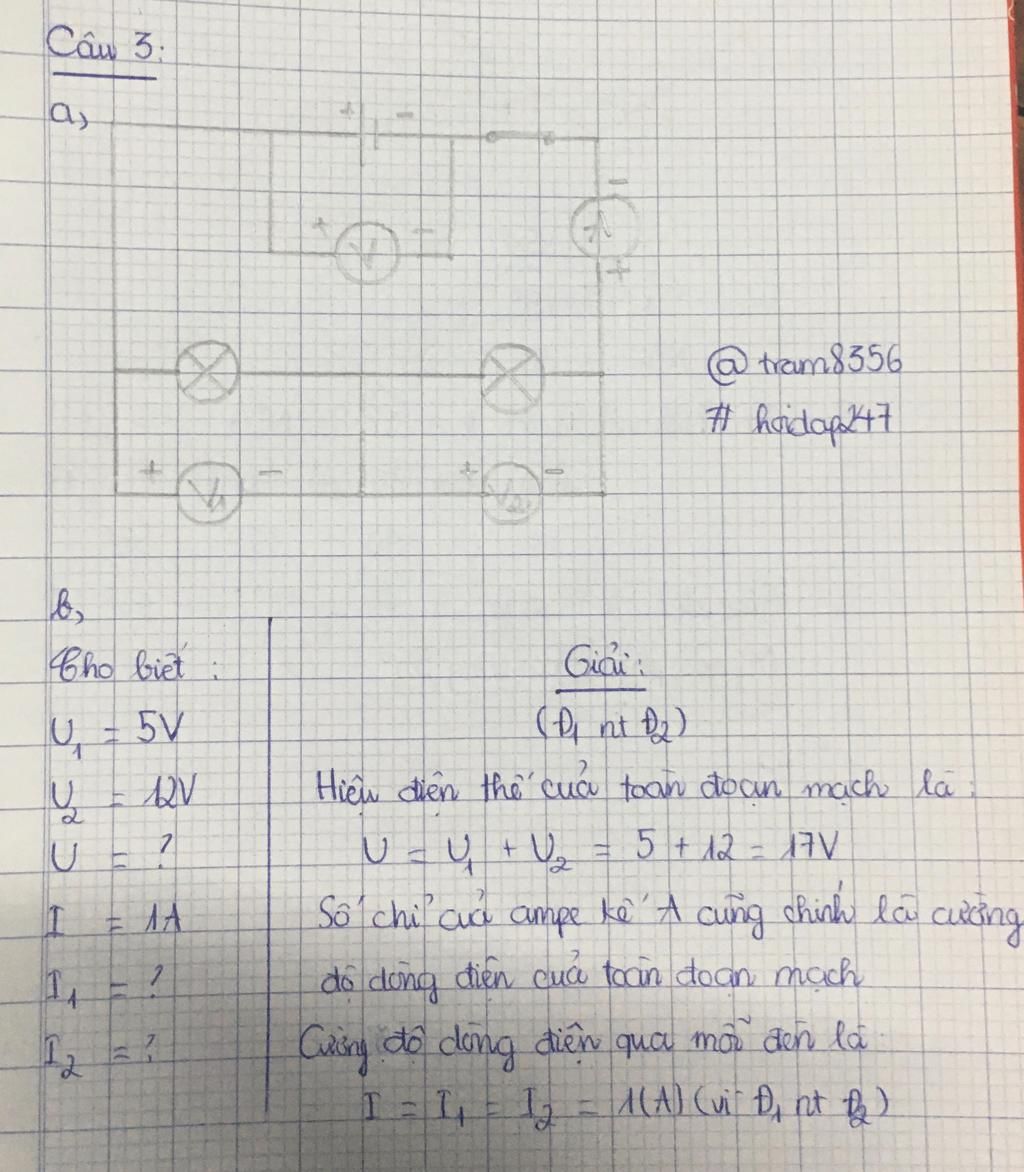 Câu 3:
a,
+ -
-
+ V -
A
+
@tram8356
# hoidap247
+ V1 - + V2 -
b,
Cho biết :
U1 = 5V
U2 = 12V
U = ?
I = 1A
I1 = ?
I2 = ?
Giải:
(Đ1 nt Đ2)
Hiệu điện thế của toàn đoạn mạch là:
U = U1 + U2 = 5 + 12 = 17V
Số chỉ của ampe kế A cũng chính là cường
độ dòng điện của toàn đoạn mạch
Cường độ dòng điện qua mỗi đèn là
I = I1 = I2 = 1(A) (vì Đ1 nt Đ2)